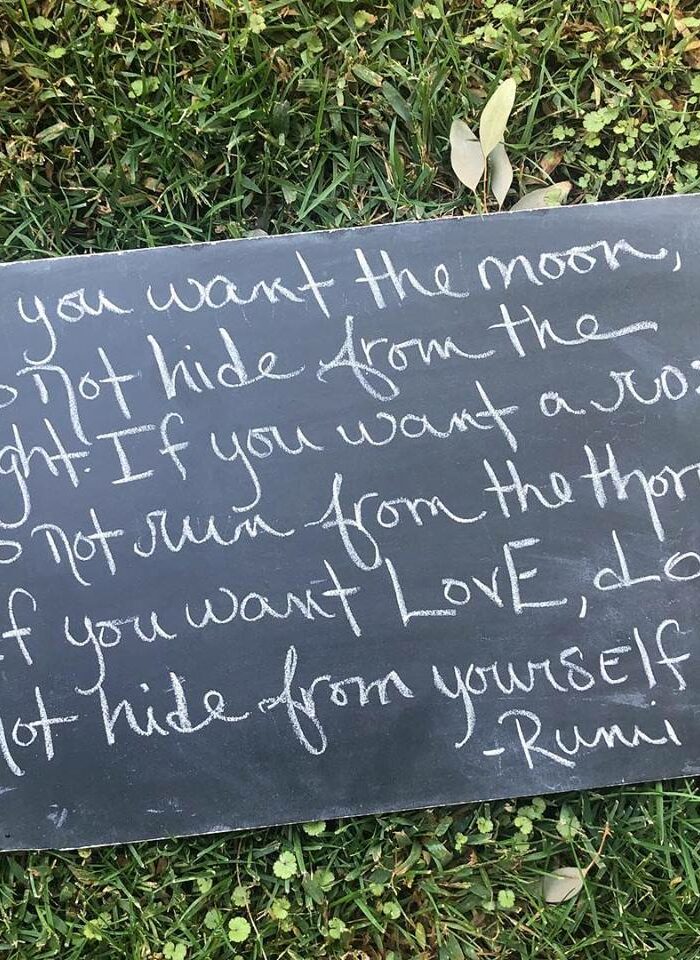 you want the moon,
not hide from the
ght. If you want a ros
not run from the thorn
f you want LovE, do
not hide from yoursELf
-Rumi